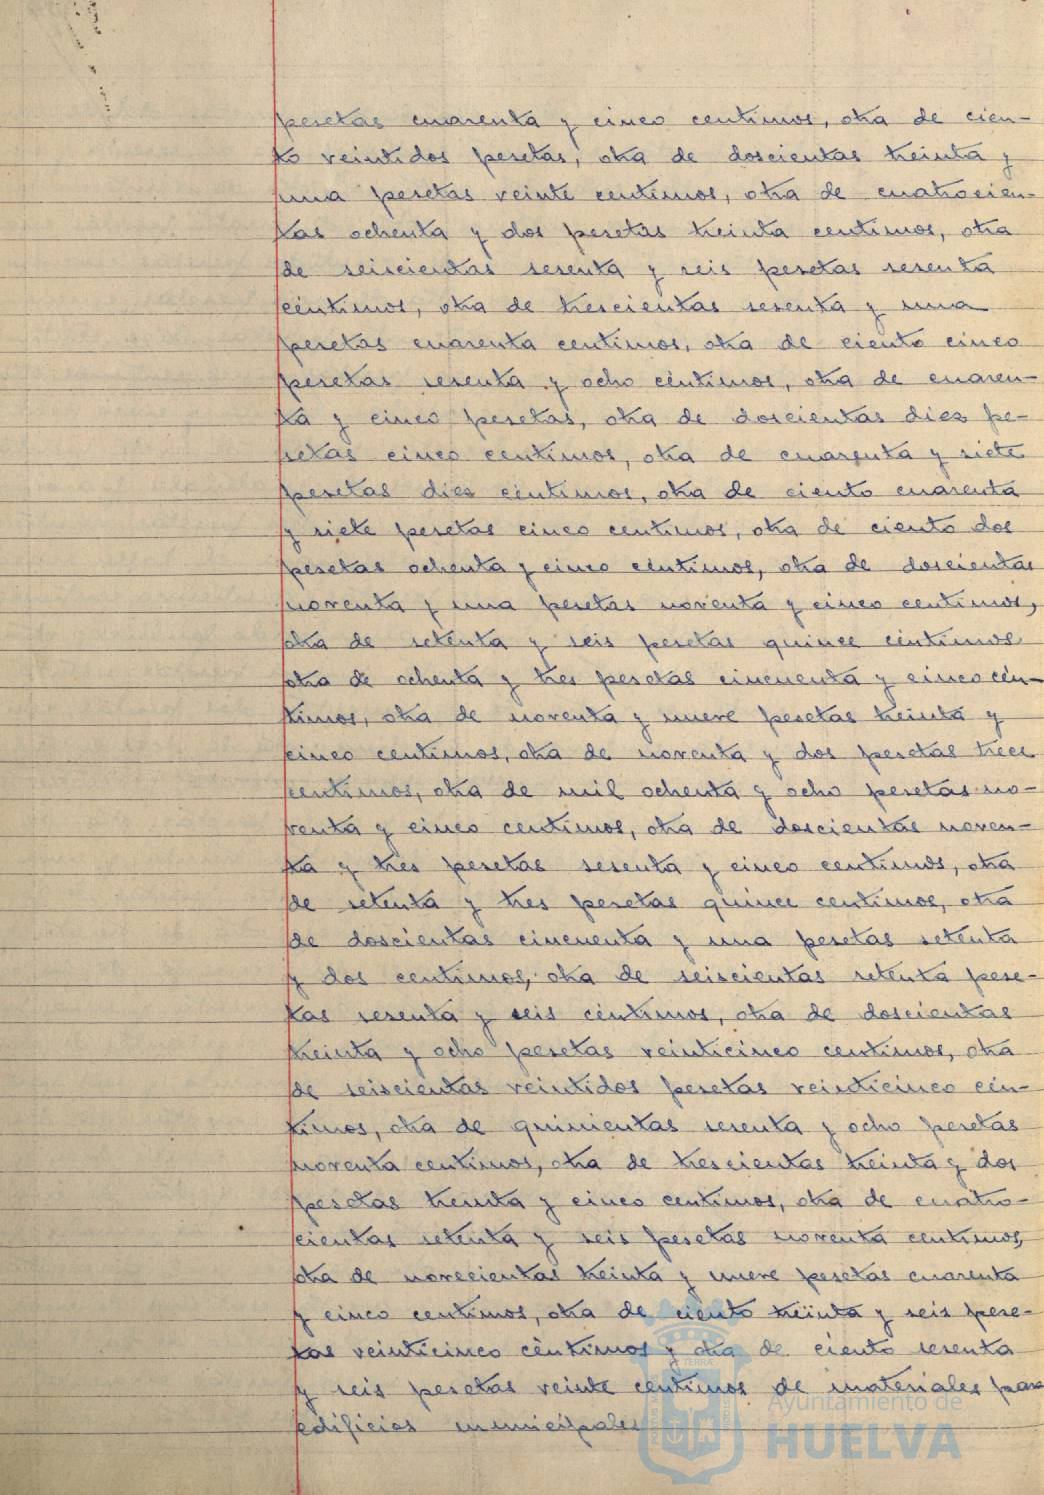 pesetas cuarenta y cinco centimos, otra de cien-
to veintidos pesetas, otra de doscientas treinta y
una pesetas veinte centimos, otra de cuatrocien-
tas ochenta y dos pesetas treinta centimos, otra
de seiscientas sesenta y seis pesetas sesenta
céntimos, otra de trescientas sesenta y una
pesetas cuarenta centimos, otra de ciento cinco
pesetas sesenta y ocho céntimos, otra de cuaren-
ta y cinco pesetas, otra de doscientas diez pe-
setas cinco centimos, otra de cuarenta y siete
pesetas diez céntimos, otra de ciento cuarenta
y siete pesetas cinco centimos, otra de ciento dos
pesetas ochenta y cinco céntimos, otra de doscientas
noventa y una pesetas noventa y cinco centimos,
otra de setenta y seis pesetas quince céntimos
otra de ochenta y tres pesetas cincuenta y cinco cén-
timos, otra de noventa y nueve pesetas treinta y
cinco centimos, otra de noventa y dos pesetas trece
centimos, otra de mil ochenta y ocho pesetas no-
venta y cinco centimos, otra de doscientas noven-
ta y tres pesetas sesenta y cinco centimos, otra
de setenta y tres pesetas quince centimos, otra
de doscientas cincuenta y una pesetas setenta
y dos centimos, otra de seiscientas setenta pese-
tas sesenta y seis céntimos, otra de doscientas
treinta y ocho pesetas veinticinco centimos, otra
de seiscientas veintidos pesetas veinticinco cén-
timos, otra de quinientas sesenta y ocho pesetas
noventa centimos, otra de trescientas treinta y dos
pesetas treinta y cinco centimos, otra de cuatro-
cientas setenta y seis pesetas noventa centimos,
otra de novecientas treinta y nueve pesetas cuarenta
y cinco centimos, otra de ciento treinta y seis pese-
tas veinticinco céntimos y otra de ciento sesenta
y seis pesetas veinte centimos de materiales para
edificios municipales
Ayuntamiento de
HUELVA